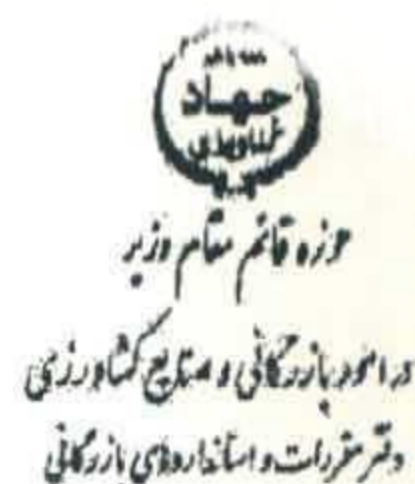 جهاد
کشاورزی
حوزه قائم مقام وزیر
در امور بازرگانی و صنایع کشاورزی
دفتر مقررات و استانداردهای بازرگانی